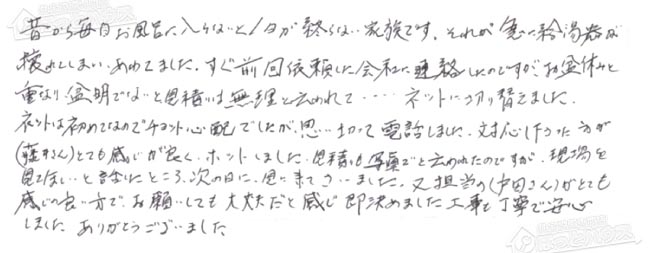 昔から毎日お風呂に入らないと1日が終らない家族です。それが急に給湯器が
壊れてしまい、あわてました。すぐ前回依頼した会社に連絡したのですが、お盆休みと
重なり、盆明でないと見積いは無理と云われて‥‥‥ネットに切り替えました。
ネットは初めてなのでチョット心配でしたが、思い切って電話しました。対応して下さった方が
とても感じが良く、ホットしました。見積も写真でと云われたのですが、現場を
見てほしいと話したところ、次の日に、見に来て下さいました。又担当の(戸田さん)がとても
感じの良い方で、お願いしても大丈夫だと感じ即決めました。工事も丁寧で安心
しました ありがとうございました